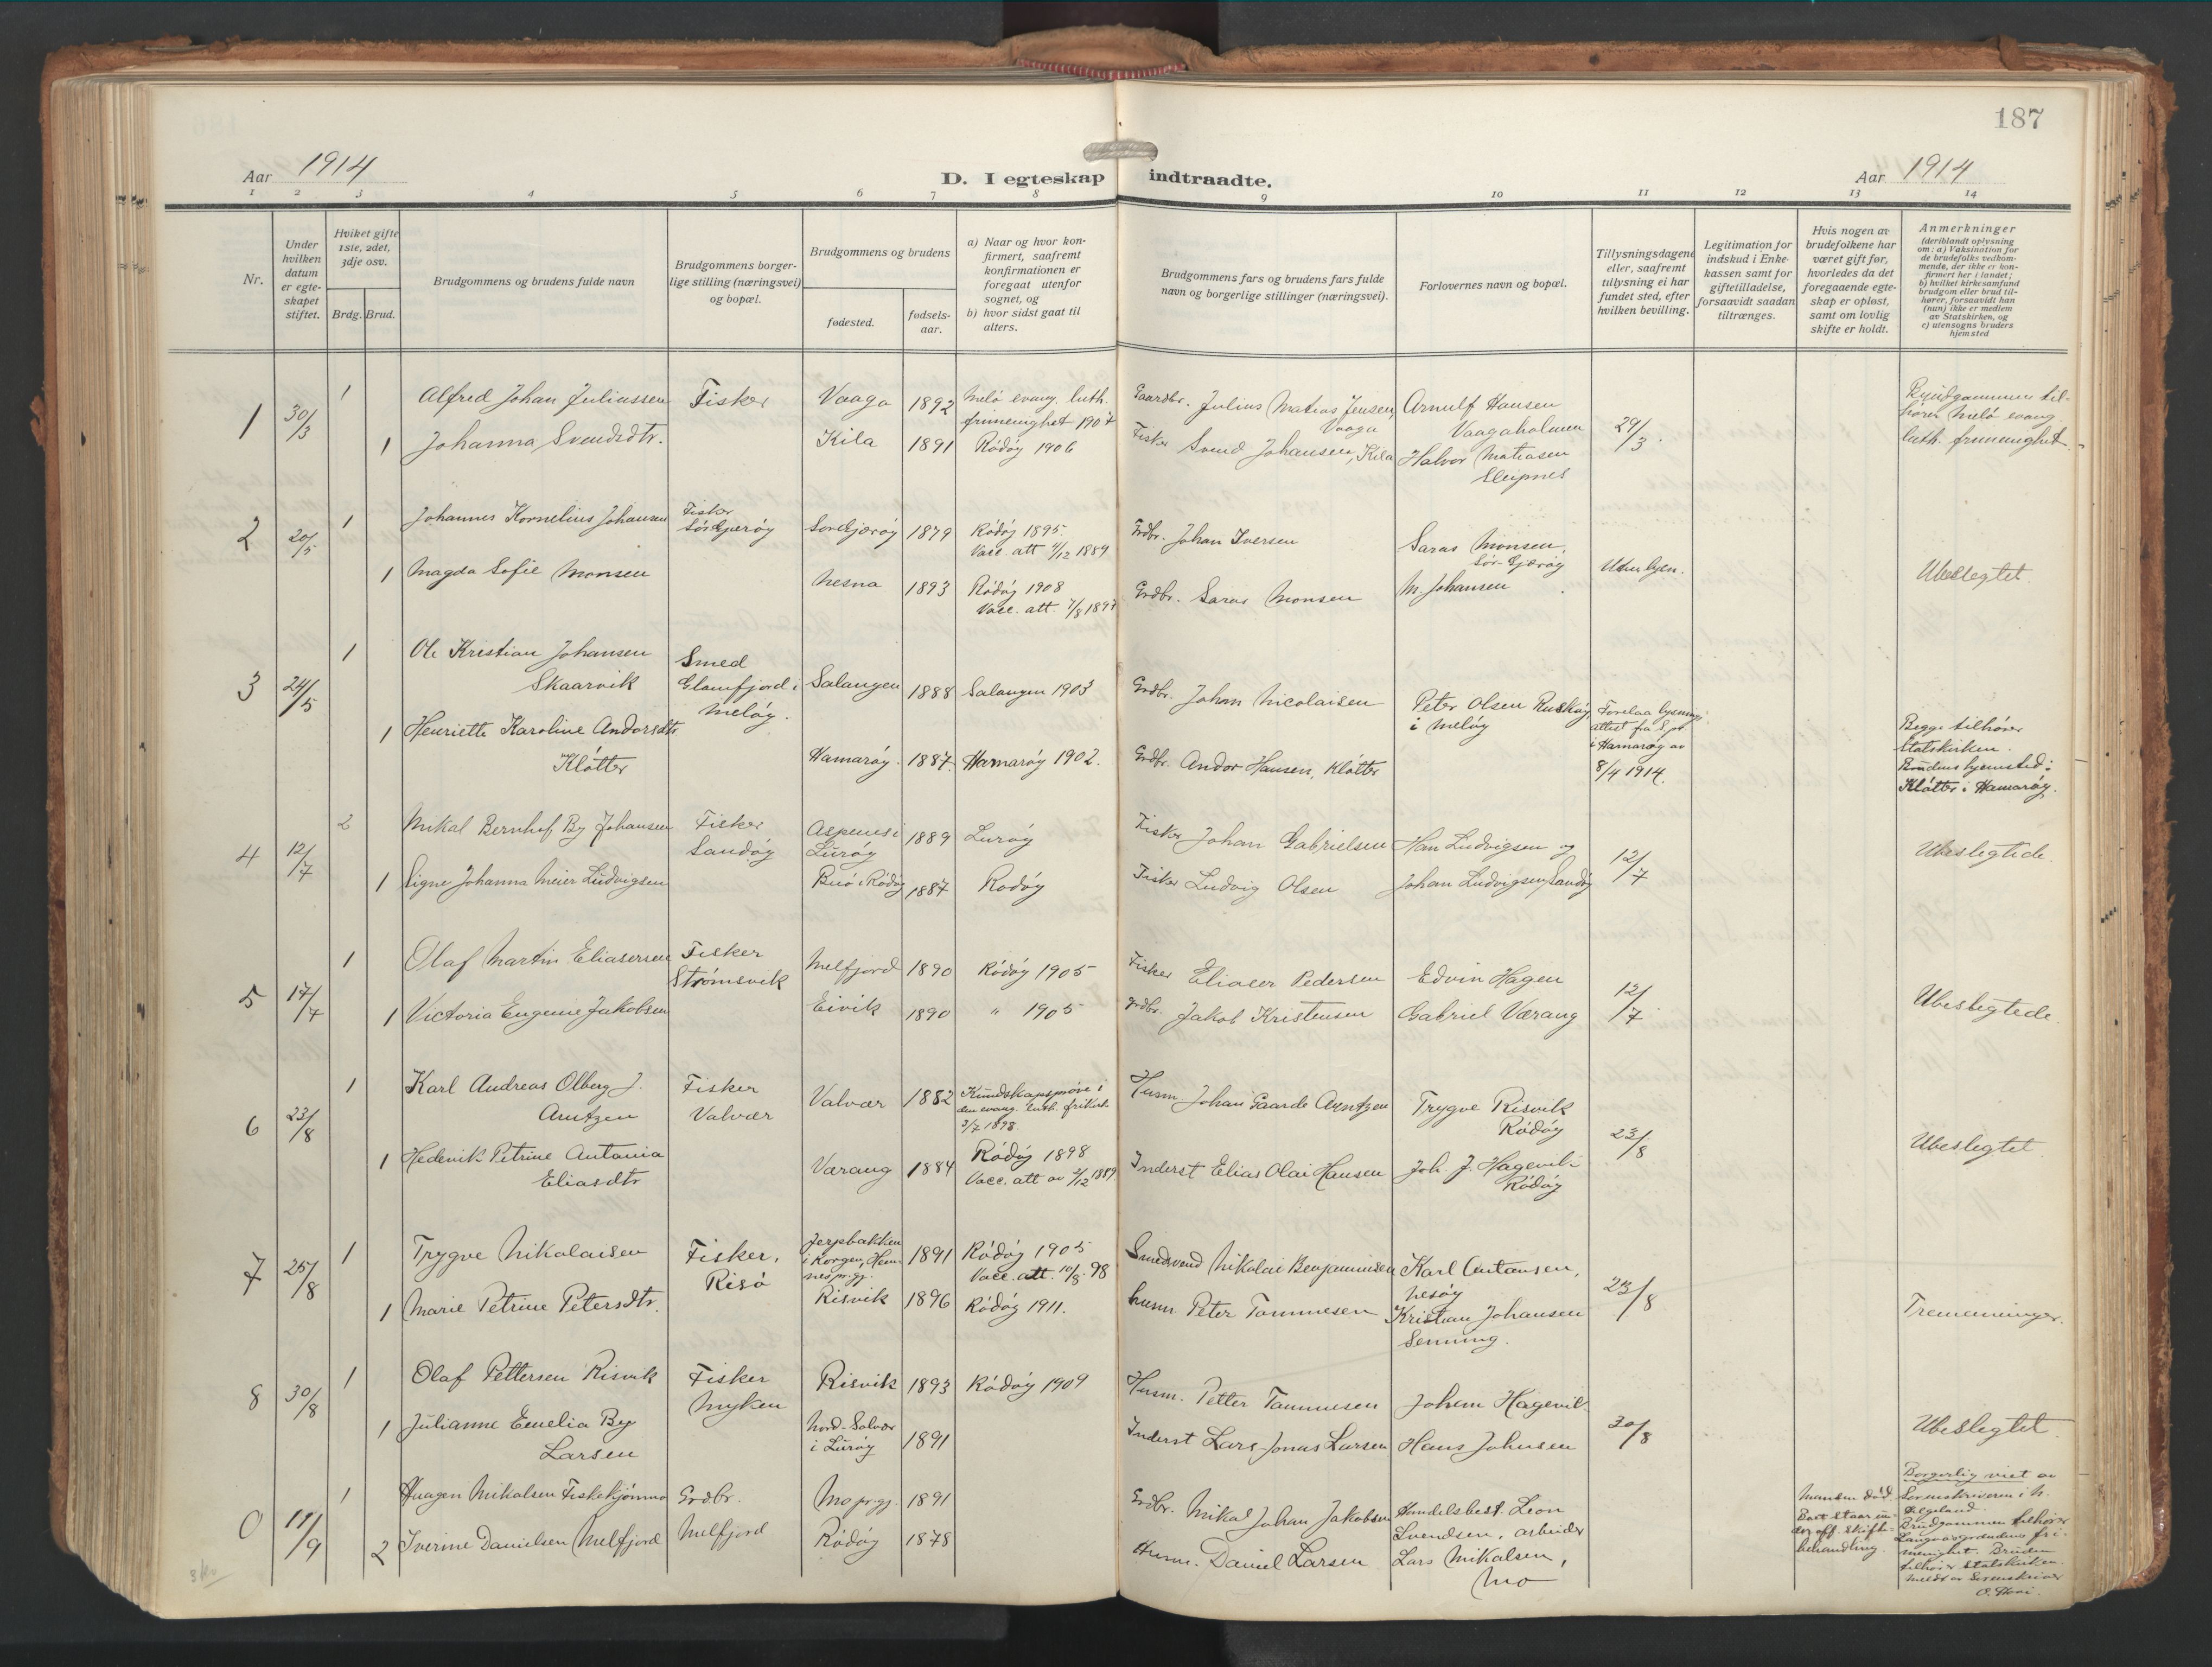 187
Aar 1914
D. I egteskap indtraadte.
Aar 1914
1 2 3 4 5 6 7 8 9 10 11 12 13 14
Nr.
Under hvilken datum er egteskapet stiftet.
Hviket gifte 1ste, 2det, 3dje osv.
Brdg. Brud.
Brudgommens og brudens fulde navn
Brudgommens borgerlige stilling (næringsvei) og bopæl.
Brudgommens og brudens
fødested.
fødselsaar.
a) Naar og hvor konfirmert, saafremt konfirmationen er foregaat utenfor sognet, og
b) hvor sidst gaat til alters.
Brudgommens fars og brudens fars fulde navn og borgerlige stillinger (næringsvei).
Forlovernes navn og bopæl.
Tillysningsdagene eller, saafremt tillysning ei har fundet sted, efter hvilken bevilling.
Legitimation for indskud i Enkekassen samt for giftetilladelse, forsaavidt saadan tiltrænges.
Hvis nogen av brudefolkene har været gift før, hvorledes da det foregaaende egteskap er opløst, samt om lovlig skifte er holdt.
Anmerkninger
(deriblandt oplysning om: a) Vaksination for de brudefolks vedkommende, der ikke er konfirmert her i landet; b) hvilket kirkesamfund brudgom eller brud tilhører, forsaavidt han (hun) ikke er medlem av Statskirken, og c) utensogns bruders hjemsted
1 30/3 1 Alfred Johan Juliussen Fisker Vaaga 1892 Melö evang. luth. frimenighet 1907 Gaardbr. Julius Matias Jensen, Vaaga Arnulf Hansen Vaagaholmen 29/3 Brudgommen tilhører Melö evang luth. frimenighet
1 Johanna Svendsdtr. Kila 1891 Rödöy 1906 Fisker Svend Johansen, Kila Halvor Matiasen Sleipnes
2 20/5 1 Johannes Kornelius Johansen Fisker Sör-Gjeröy Sör-Gjeröy 1879 Rödöy 1895. Vacc. att 4/12 1889 Grdbr. Johan Iversen Saras Monsen, Sör-Gjeröy Ubeslegtet
1 Magda Sofie Monsen Nesna 1893 Rödöy 1908 Vacc. att. 7/8 1897 Grdbr. Saras Monsen M. Johansen
3 24/5 1 Ole Kristian Johansen Skaarvik Smed Glomfjord i Melöy. Salangen 1888 Salangen 1903 Grdbr. Johan Nicolaisen Peter Olsen Ruskøy i Melöy Forelaa lysningsattest fra Spr i Hamaröy av 8/4 1914. Begge tilhører Statskirken. Brudens hjemsted: Klötter i Hamaröy.
1 Henriette Karoline Andorsdtr Klötter Hamaröy. 1887. Hamaröy 1902. Grdbr. Andor Hansen, Klötter
4 12/7 2 Mikal Bernhof By Johansen Fisker Sandöy Aspenes i Luröy 1889 Luröy Fisker Johan Gabrielsen Han Ludvigsen og 12/7 Ubeslegtede
1 Signe Johanna Meier Ludvigsen Buö i Rödöy 1887 Rödöy Fisker Ludvig Olsen Johan Ludvigsen, Sandöy
5 17/7 1 Olaf Martin Eliasersen Fisker Strømsvik Melfjord 1890 Rödöy 1905 Fisker Eliaser Pedersen Edvin Hagen 12/7 Ubeslegtede
1 Victoria Eugenie Jakobsen Eivik 1890 " 1905 Grdbr. Jakob Kristensen Gabriel Værang
6 23/8 1 Karl Andreas Olberg J. Arntzen Fisker Valvær Valvær 1882 Kundskapsprøve i den evang. luth. frikirke 3/7 1898. Husm Johan Gaarde Arntzen Trygve Risvik Rödöy 23/8 Ubeslegtet
1 Hedevik Petrine Antonia Eliasdtr Værang 1884 Rödöy 1898 Vacc. att av 2/12 1889 Inderst Elias Olai Hansen Joh. J. Hagevik Rödöy
7 25/8 1 Trygve Nikolaisen Fisker, Risö Jerpbakken i Korgen, Hemnes pr.gj. 1891 Rödöy 1905 Vacc. att. 10/8 98 Smedsvend Nikolai Benjaminsen Karl Antonsen, Nesöy 23/8 Tremenninger.
1 Marie Petrine Petersdtr. Risvik 1896 Rödöy 1911. husm Peter Tommesen Kristian Johansen Senning.
8 30/8 1 Olaf Pettersen Risvik Fisker Myken Risvik 1893 Rödöy 1909 Husm. Petter Tommesen Johem Hagevik 30/8 Ubeslegtet
1 Julianne Emelia By Larsen Nord-Solvær i Luröy 1891 Inderst Lars Jonas Larsen Hans Johnsen
0 11/9 1 Haagen Mikalsen Fiskekjønmo Grdbr. Melfjord Mo pr.gj. 1891 Grdbr. Mikal Johan Jakobsen Handelsbest. Leon Svendsen, arbeider Manden död. Boet staar under off. skiftebehandling. Borgerlig viet av Sorenskriveren i N. Helgeland. Brudgommen tilhører frimenighet. Bruden tilhører Statskirken. Meldt av Sorenskriver
2 Iverine Danielsen Melfjord Rödöy 1878 Husm. Daniel Larsen Lars Mikalsen, Mo